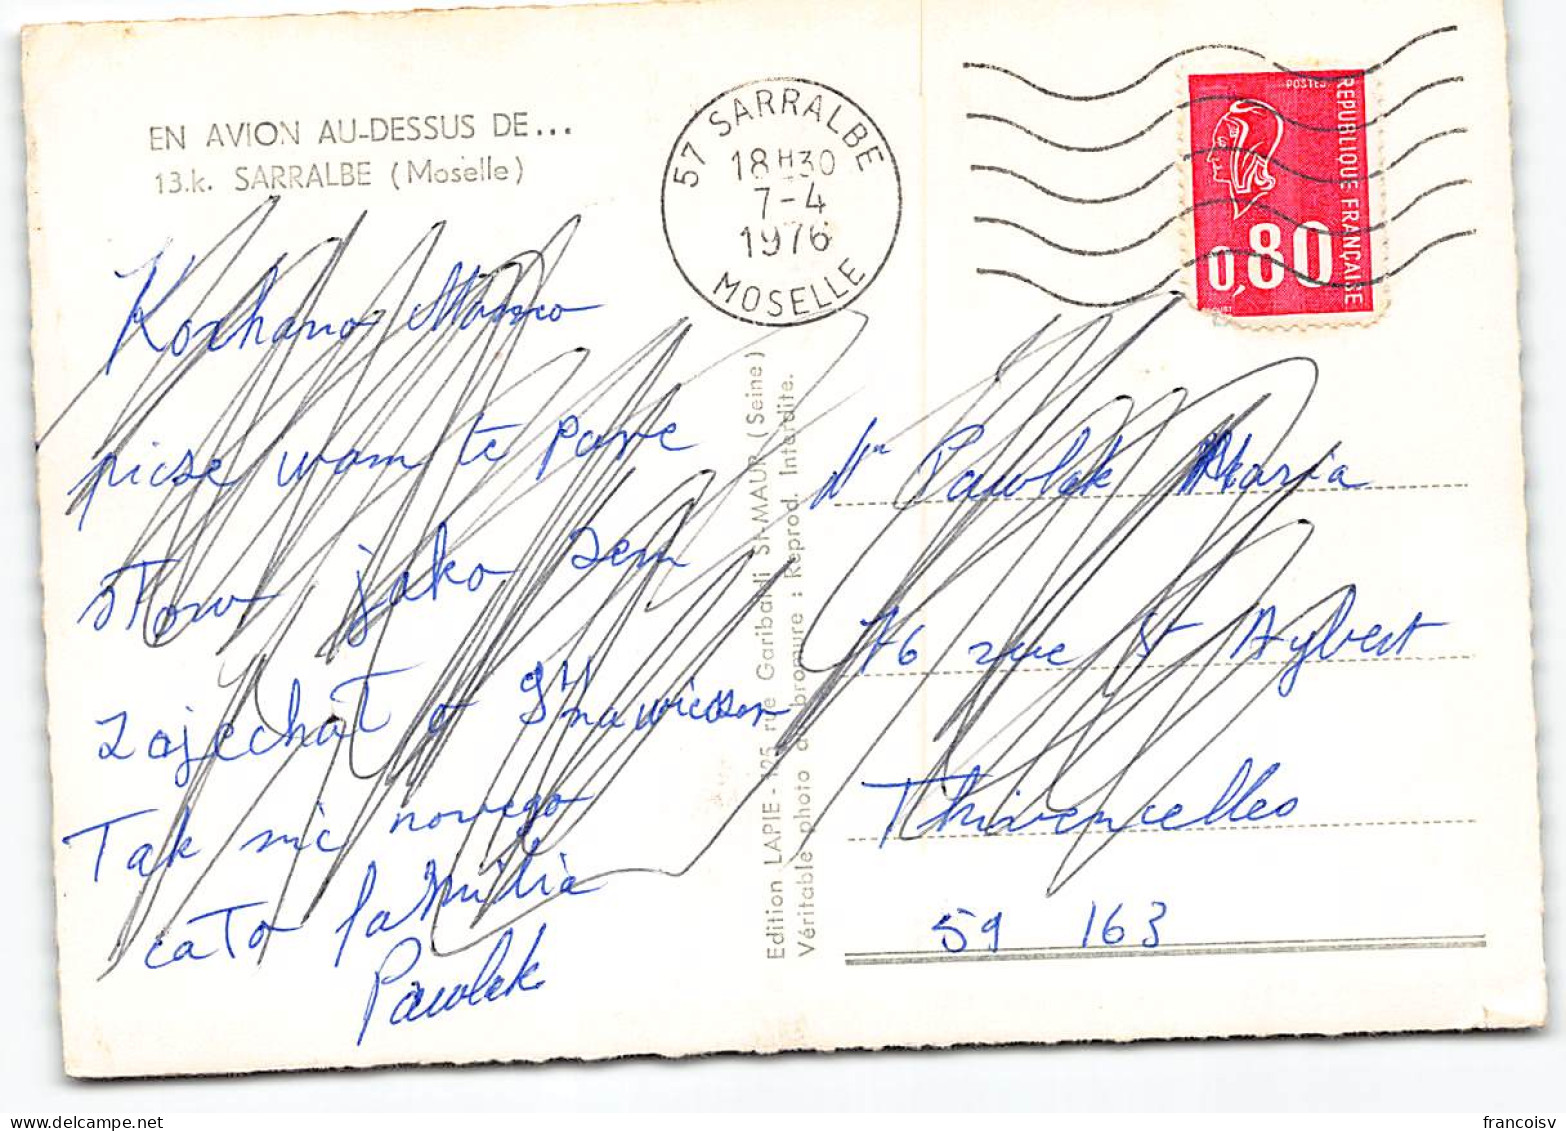 EN AVION AU-DESSUS DE...
13.k. SARRALBE (Moselle)
57 SARRALBE
18H30
7-4
1976
MOSELLE
POSTES
REPUBLIQUE FRANÇAISE
0,80
Kochano Mamo
picse wam te pare
stow jako zem
zajechat o
Tak nic nowego
cato familia
Pawlak
Edition LAPIE - 125 rue Garibaldi St-MAUR (Seine)
Véritable photo au bromure : Reprod. Interdite.
Pawlak Maria
76 rue St Aybert
Thivencelles
59 163
francoisv